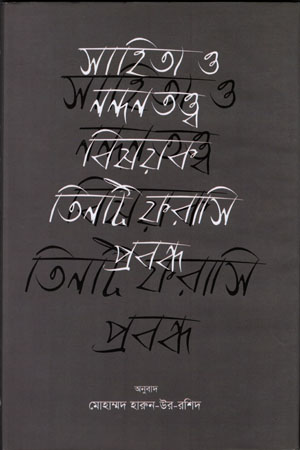 সাহিত্য ও
নন্দনতত্ত্ব
বিষয়ক
তিনটি ফরাসি
প্রবন্ধ
সাহিত্য ও
নন্দনতত্ত্ব
বিষয়ক
তিনটি ফরাসি
প্রবন্ধ
অনুবাদ
মোহাম্মদ হারুন-উর-রশিদ